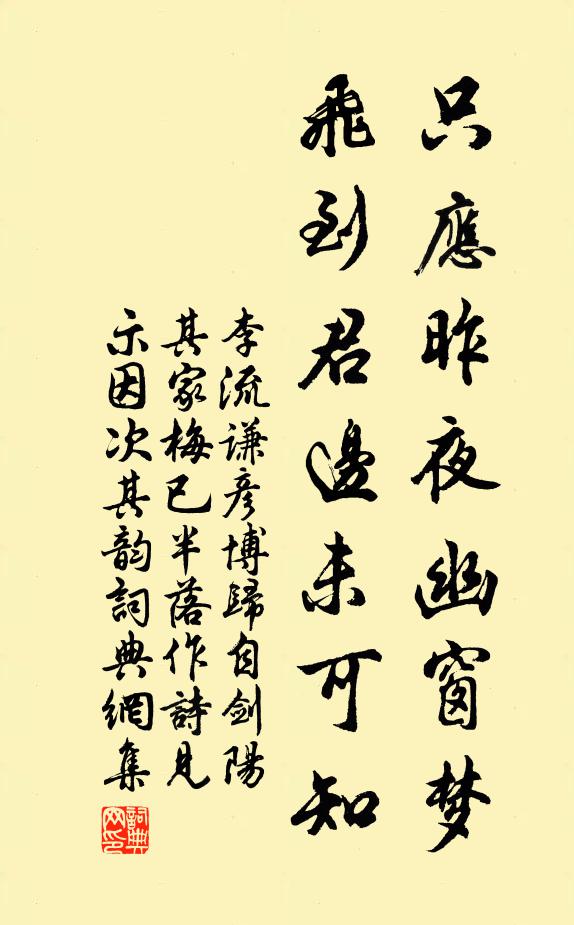 只應昨夜幽窗梦
飛到君邊未可知
李流謙彦博歸自劍陽
其家梅已半落作詩見
示因次其韵詞典網集
詞典
网印